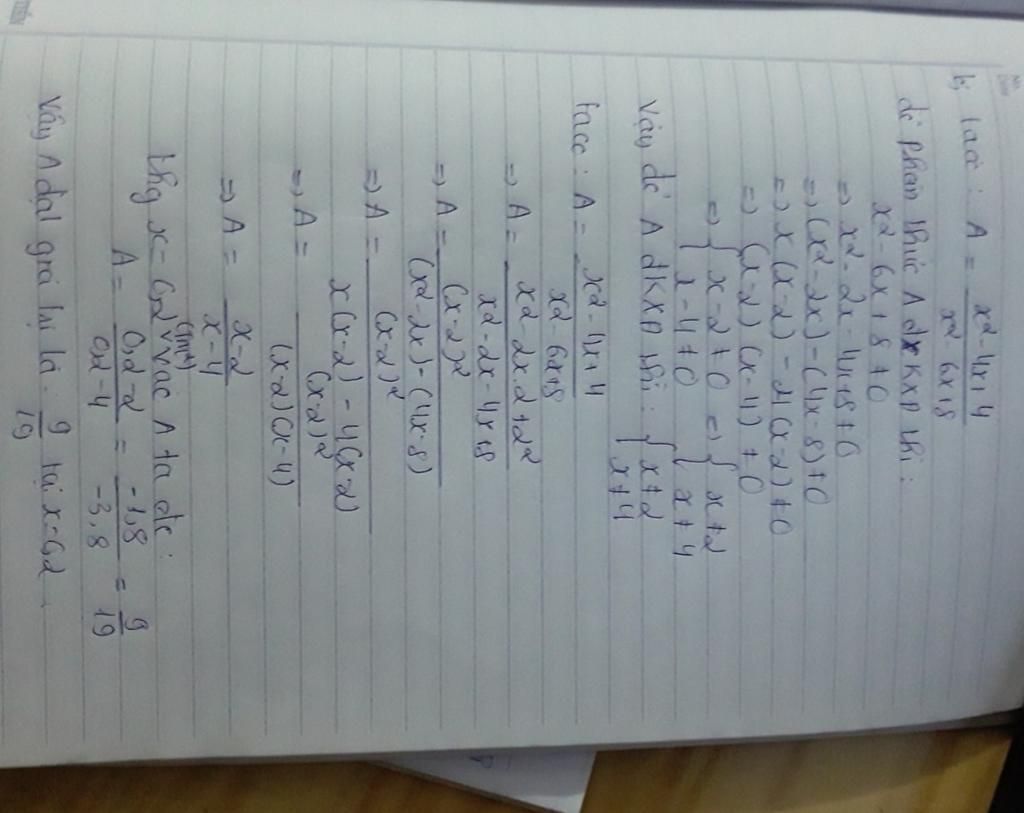 b, Tacó : A = x² - 4x + 4 / x² - 6x + 8
để phân thức A đkxđ thì :
x² - 6x + 8 ≠ 0
=> x² - 2x - 4x + 8 ≠ 0
=> (x² - 2x) - (4x - 8) ≠ 0
=> x(x-2) - 4(x-2) ≠ 0
=> (x-2)(x-4) ≠ 0
=> { x-2 ≠ 0 => { x ≠ 2
x-4 ≠ 0 x ≠ 4
Vậy để A đkxđ thì : { x ≠ 2
x ≠ 4
Tacó : A = x² - 4x + 4 / x² - 6x + 8
=> A = x² - 2x.2 + 2² / x² - 2x - 4x + 8
=> A = (x-2)² / (x² - 2x) - (4x - 8)
=> A = (x-2)² / x(x-2) - 4(x-2)
=> A = (x-2)² / (x-2)(x-4)
=> A = x-2 / x-4
Thg x = 0,2 (tmđk) vào A ta đc :
A = 0,2-2 / 0,2-4 = -1,8 / -3,8 = 9 / 19
Vậy A đạt giá trị là 9 / 19 tại x = 0,2